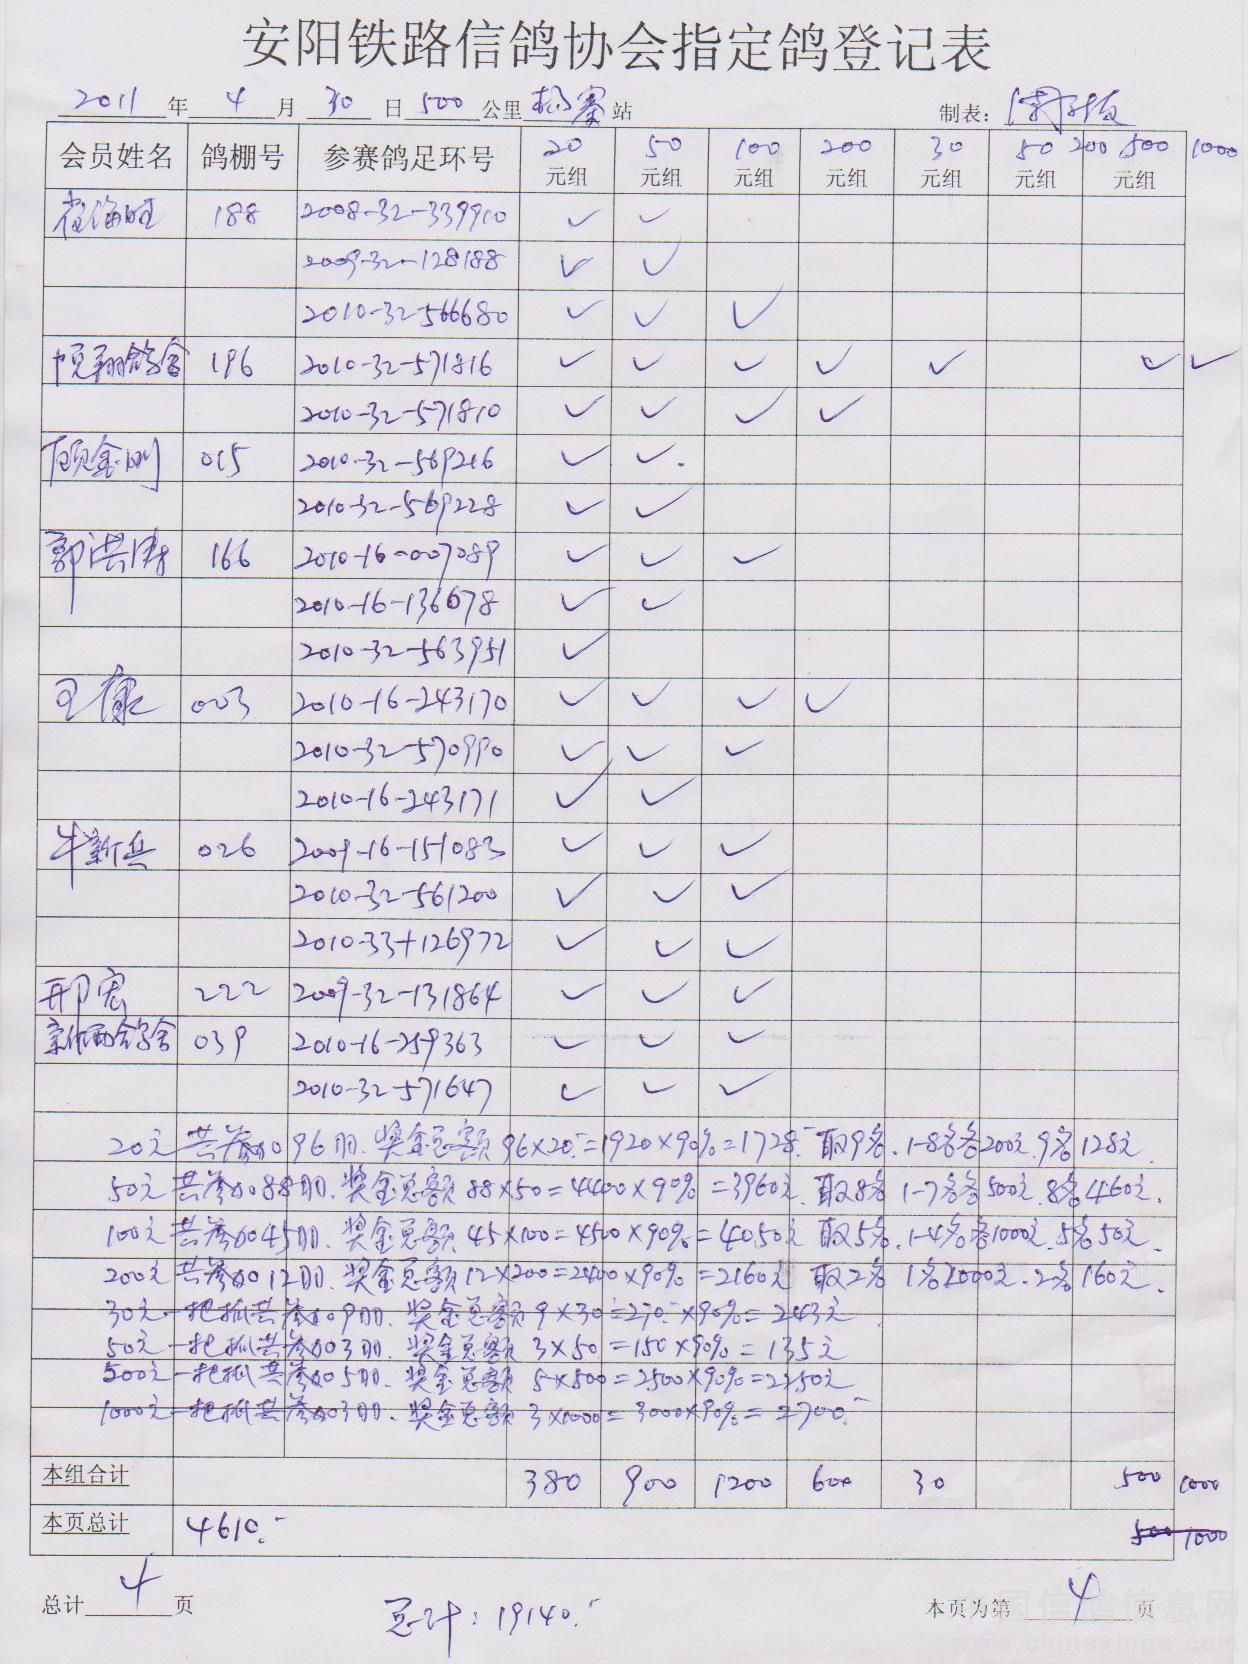 安阳铁路信鸽协会指定鸽登记表
2011 年 4 月 30 日 500 公里 杨寨 站 制表:
会员姓名 鸽棚号 参赛鸽足环号 20元组 50元组 100元组 200元组 30元组 50元组 200 500元组 1000
188 2008-32-339910 ✓ ✓
2009-32-128188 ✓ ✓
2010-32-566680 ✓ ✓ ✓
翔鸽舍 196 2010-32-571816 ✓ ✓ ✓ ✓ ✓ ✓ ✓
2010-32-571810 ✓ ✓ ✓ ✓
顾金刚 015 2010-32-569216 ✓ ✓
2010-32-569228 ✓ ✓
郭洪涛 166 2010-16-007089 ✓ ✓ ✓
2010-16-136678 ✓ ✓
2010-32-563951 ✓
王康 003 2010-16-243170 ✓ ✓ ✓ ✓
2010-32-570990 ✓ ✓ ✓
2010-16-243171 ✓ ✓
牛新兵 026 2009-16-151083 ✓ ✓ ✓
2010-32-561200 ✓ ✓ ✓
2010-33-126972 ✓ ✓ ✓
邢宏 222 2009-32-131864 ✓ ✓ ✓
鸽舍 039 2010-16-259363 ✓ ✓ ✓
2010-32-571647 ✓ ✓ ✓
20元共参加96羽.奖金总额96×20=1920×90%=1728.- 取9名.1-8名各200元.9名128元.
50元共参加88羽.奖金总额88×50=4400×90%=3960元.取8名 1-7名各500元.8名460元.
100元共参加45羽.奖金总额45×100=4500×90%=4050元 取5名.1-4名各1000元.5名50元.
200元共参加12羽.奖金总额12×200=2400×90%=2160元 取2名 1名2000元.2名160元.
30元一把抓共参加9羽.奖金总额9×30=270.-×90%=243元
50元一把抓共参加3羽.奖金总额3×50=150×90%=135元
500元一把抓共参加5羽.奖金总额5×500=2500×90%=2250元
1000元一把抓共参加3羽.奖金总额3×1000=3000×90%=2700.-
本组合计 380 900 1200 600 30 500 1000
本页总计 4610.- 500 1000
总计 4 页 总计:19140.- 本页为第 4 页
中国信鸽信息网
www.chinaxinge.com